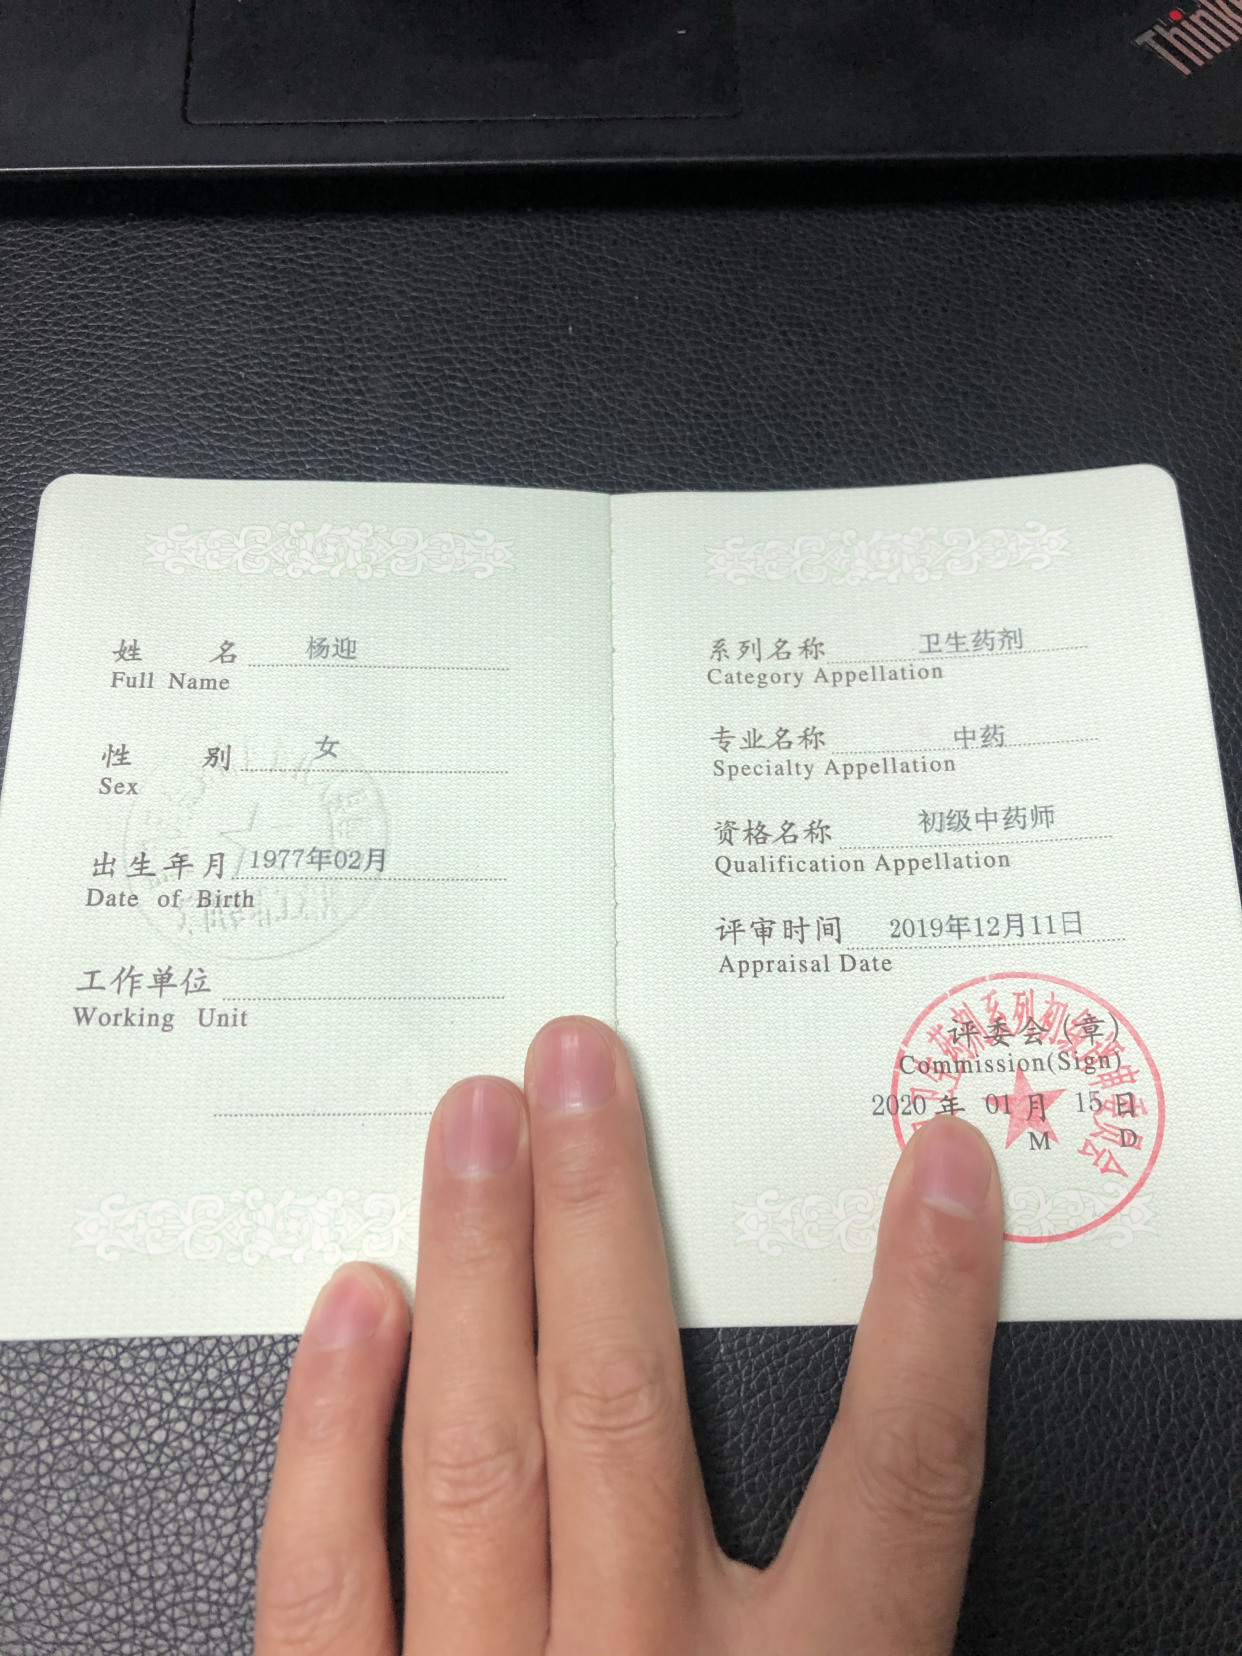 Think
姓 名 杨迎
Full Name
性 别 女
Sex
出生年月 1977年02月
Date of Birth
工作单位
Working Unit
系列名称 卫生药剂
Category Appellation
专业名称 中药
Specialty Appellation
资格名称 初级中药师
Qualification Appellation
评审时间 2019年12月11日
Appraisal Date
卫生药剂系列初级评审委员会
评委会(章)
Commission(Sign)
2020 年 01 月 15 日
M D